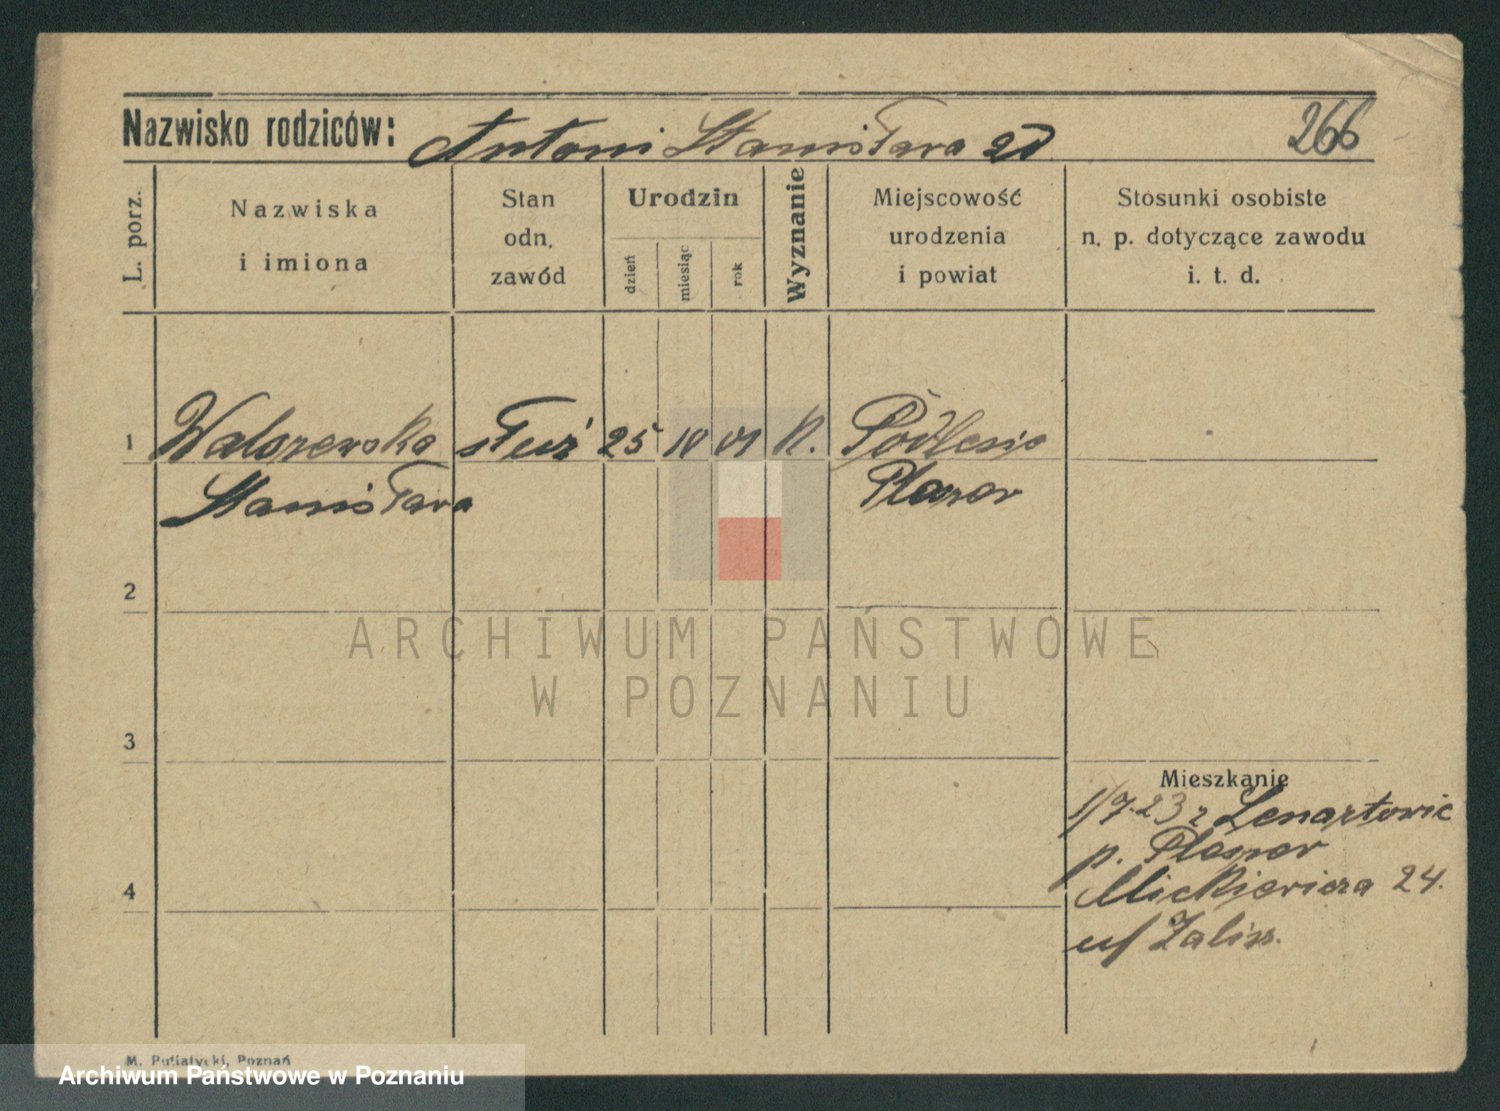 Nazwisko rodziców: Antoni Stanisława zd 266
L. porz.
Nazwiska
i imiona
Stan
odn.
zawód
Urodzin
dzień
miesiąc
rok
Wyznanie
Miejscowość
urodzenia
i powiat
Stosunki osobiste
n. p. dotyczące zawodu
i. t. d.
1 służ 25 IV 01 K. Podlesie
Stanisława
2
3
4
Mieszkanie
1/7.23 z Lenartowic
p. Pleszew
Mickiewicza 24.
u/
M. Putiatycki, Poznań
ARCHIWUM PAŃSTWOWE
W POZNANIU
Archiwum Państwowe w Poznaniu